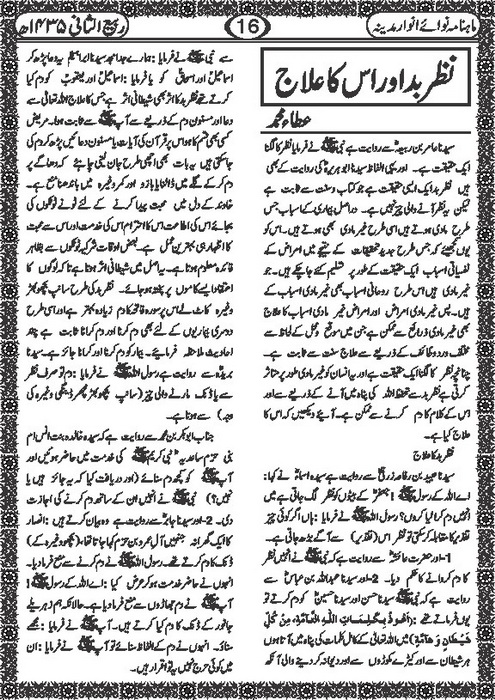 ماہنامہ نوائے انوار مدینہ
16
ربیع الثانی ۱۴۳۵ھ
نظر بد اور اس کا علاج
عطاء محمد
سیدنا عامر بن ربیعہؓ سے روایت ہے نبی ﷺ نے فرمایا نظر کا لگنا
ایک حقیقت ہے۔ اور یہی الفاظ سیدنا ابوہریرہؓ کی روایت کے بھی
ہیں نظر بد ایک ایسی حقیقت ہے جو کتاب وسنت سے ثابت ہے
لیکن یہ نظر آنے والی چیز نہیں ہے۔ دراصل بیماری کے اسباب جس
طرح مادی ہوتے ہیں اسی طرح غیر مادی بھی ہوتے ہیں۔ اس کو
یوں سمجھئے کہ جس طرح جدید تحقیقات کے نتیجے میں امراض کے
نفسیاتی اسباب ایک حقیقت کے طور پر تسلیم کئے جا چکے ہیں۔ جو
غیر مادی ہیں اس طرح روحانی اسباب بھی غیر مادی اسباب کے
ہیں۔ پس غیر مادی امراض اور امراض غیر مادی اسباب کا علاج
بھی غیر مادی ذرائع سے ممکن ہے، جن میں موقع ومحل کے لحاظ سے
مختلف ورد وظائف کے ذریعے سے علاج سنت سے ثابت ہے۔
چنانچہ نظر کا لگنا ایک حقیقت ہے اور یہ انسان کو غیر مادی طور پر متاثر
کرتی ہے نظر بد سے تحفظ اللہ کی پناہ میں آنے کے ذریعے سے اور
اس کے کلام کا دم کرنے سے ممکن ہے۔ آیئے دیکھیں کہ اس کا
علاج کیا ہے۔
نظر بد کا علاج
سیدنا عبید بن رفاعہ زرقیؓ سے روایت ہے سیدہ اسماءؓ نے کہا:
اے اللہ کے رسول ﷺ! جعفرؓ کے بیٹوں کو نظر لگ جاتی ہے میں
انہیں دم کرا لیا کروں؟ رسول اللہ ﷺ نے فرمایا: ہاں اگر کوئی چیز
تقدیر کا مقابلہ کر سکتی تو نظر اس (تقدیر) سے آگے بڑھ جاتی ہے۔
1-اور حضرت عائشہؓ سے روایت ہے کہ نبی ﷺ نے انہیں نظر
کا دم کروانے کا حکم دیا۔ 2-اور سیدنا عبداللہ بن عباسؓ سے
روایت ہے کہ نبی ﷺ سیدنا حسن اور سیدنا حسینؓ کو دم کرتے تو
یہ کلمات فرماتے تھے: (اَعُوذُ بِکَلِمَاتِ اللّٰہِ التَّامَّۃِ، مِنْ کُلِّ
شَیْطَانٍ وَّ ھَامَّۃٍ) میں اللہ تعالیٰ کے کامل کلمات کی پناہ میں آتا ہوں
ہر شیطان سے اور کیڑے مکوڑوں سے اور دیوانہ کر دینے والی آنکھ
سے نبی ﷺ نے فرمایا: ہمارے جد امجد سیدنا ابراہیمؑ یہ دعا پڑھ کر
اسماعیلؑ اور اسحاقؑ کو یا فرمایا: اسماعیلؑ اور یعقوبؑ کو دم کیا
کرتے تھے نظر بد کا اثر بھی شیطانی اثر ہے جس کا علاج اللہ تعالیٰ سے
دعا اور مسنون دم کے ذریعے سے آپ ﷺ سے ثابت ہوا۔ مریض
کسی بھی قسم کا ہو اس پر قرآن کی آیات یا مسنون دعائیں پڑھ کر دم کی
جا سکتی ہیں یہ بات بھی اچھی طرح جان لینی چاہئے کہ دھاگے پر
دم کر کے گلے میں ڈالنا یا بازو اور کمر وغیرہ میں باندھنا منع ہے۔
خاوند کے دل میں محبت پیدا کرنے کے لئے ٹونے ٹوٹکوں کی
بجائے اس کی اطاعت اس کا احترام اس کی خدمت اور اس سے محبت
کا اظہار ہی بہترین عمل ہے۔ بعض اوقات شرکیہ ٹوٹکوں سے بظاہر
فائدہ معلوم ہوتا ہے۔ یہ اصل میں شیطانی اثر ہوتا ہے تا کہ لوگوں کا
اعتقاد ایسے کاموں پر پختہ ہو جائے۔ نظر بد کی طرح سانپ بچھو بھڑ
وغیرہ کاٹ لے اس پر سورہ فاتحہ کا دم زیادہ بہتر ہے اور اسی طرح
دوسری بیماریوں کے لئے بھی دم کرنا اور دم کرانا ثابت ہے چند
احادیث ملاحظہ فرمایئے۔ بیمار کو دم کرنا اور کرانا جائز ہے۔ سیدنا
بریدہؓ سے روایت ہے رسول اللہ ﷺ نے فرمایا: دم تو صرف نظر
سے یا ڈنک مارنے والی چیز (سانپ بچھو بھڑ مچھر ڈینگی وغیرہ کی
وجہ) سے ہوتا ہے۔
جناب ابوبکر بن محمد سے روایت ہے کہ سیدہ خالدہ بنت انس ام
بنی حزم ساعدیہؓ نبی کریم ﷺ کی خدمت میں حاضر ہوئیں اور
آپ ﷺ کو کچھ دم سنائے (اور دریافت کیا کہ یہ جائز ہیں یا
نہیں؟) نبی ﷺ نے انہیں ان کے ساتھ دم کرنے کی اجازت
دی۔ 2-اور سیدنا جابرؓ سے روایت ہے وہ بیان کرتے ہیں: انصار
کا ایک گھرانہ جنہیں آل عمرو بن حزم کہا جاتا تھا، (بچھو وغیرہ کے)
ڈنک کا دم کرتے تھے۔ رسول اللہ ﷺ نے دم کرنے سے منع فرمایا۔
انہوں نے حاضر خدمت ہو کر عرض کیا: اے اللہ کے رسول!
آپ ﷺ نے دم جھاڑوں سے منع فرما دیا ہے۔ حالانکہ ہم زہریلے
جانور کے ڈنک کا دم کیا کرتے ہیں۔ آپ ﷺ نے فرمایا: مجھے
سناؤ۔ انہوں نے دم کے الفاظ سنائے تو آپ ﷺ نے فرمایا: ان
میں کوئی حرج نہیں یہ تو اقرار ہیں۔